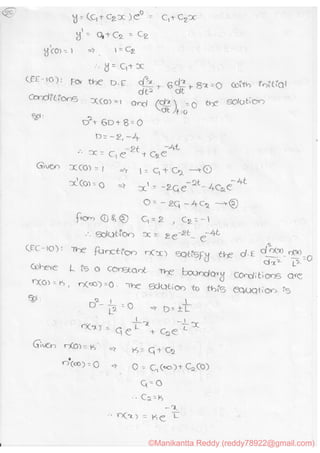 y = (C₁ + C₂x) e⁰ = C₁ + C₂x
y' = C₁ + C₂ = C₂
y'(0) = 1 ⇒ 1 = C₂
∴ y = C₁ + x
(EE-10): For the D.E d²x/dt² + 6 dx/dt + 8x = 0 with initial
conditions x(0) = 1 and (dx/dt)t=0 = 0 the solution
Sol:
D² + 6D + 8 = 0
D = -2, -4
∴ x = C₁e^-2t + C₂e^-4t
Given x(0) = 1 ⇒ 1 = C₁ + C₂ → ①
x'(0) = 0 ⇒ x' = -2C₁e^-2t - 4C₂e^-4t
0 = -2C₁ - 4C₂ → ②
from ① & ② C₁ = 2, C₂ = -1
∴ solution x = 2e^-2t - e^-4t
(EC-10): The function n(x) satisfy the d.E d²n(x)/dx² - n(x)/L² = 0
where L is a constant The boundary conditions are
n(0) = K, n(∞) = 0. The solution to this equation is
Sol:
D² - 1/L² = 0 ⇒ D = ±1/L
n(x) = C₁e^(1/L)x + C₂e^(-1/L)x
Given n(0) = K ⇒ K = C₁ + C₂
n(∞) = 0 ⇒ 0 = C₁(∞) + C₂(0)
C₁ = 0
∴ C₂ = K
∴ n(x) = Ke^-x/L
©Manikantta Reddy (reddy78922@gmail.com)